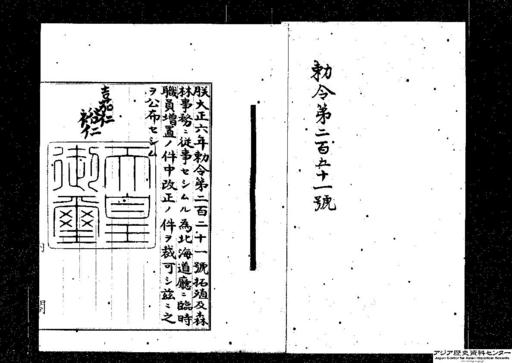 勅令第二百五十一號
朕大正六年勅令第二百二十一號拓殖及森
林事務ニ從事セシムル為北海道廳ニ臨時
職員増置ノ件中改正ノ件ヲ裁可シ茲ニ之
ヲ公布セシム
嘉仁
裕仁
天皇
御璽
内
閣
アジア歴史資料センター
Japan Center for Asian Historical Records